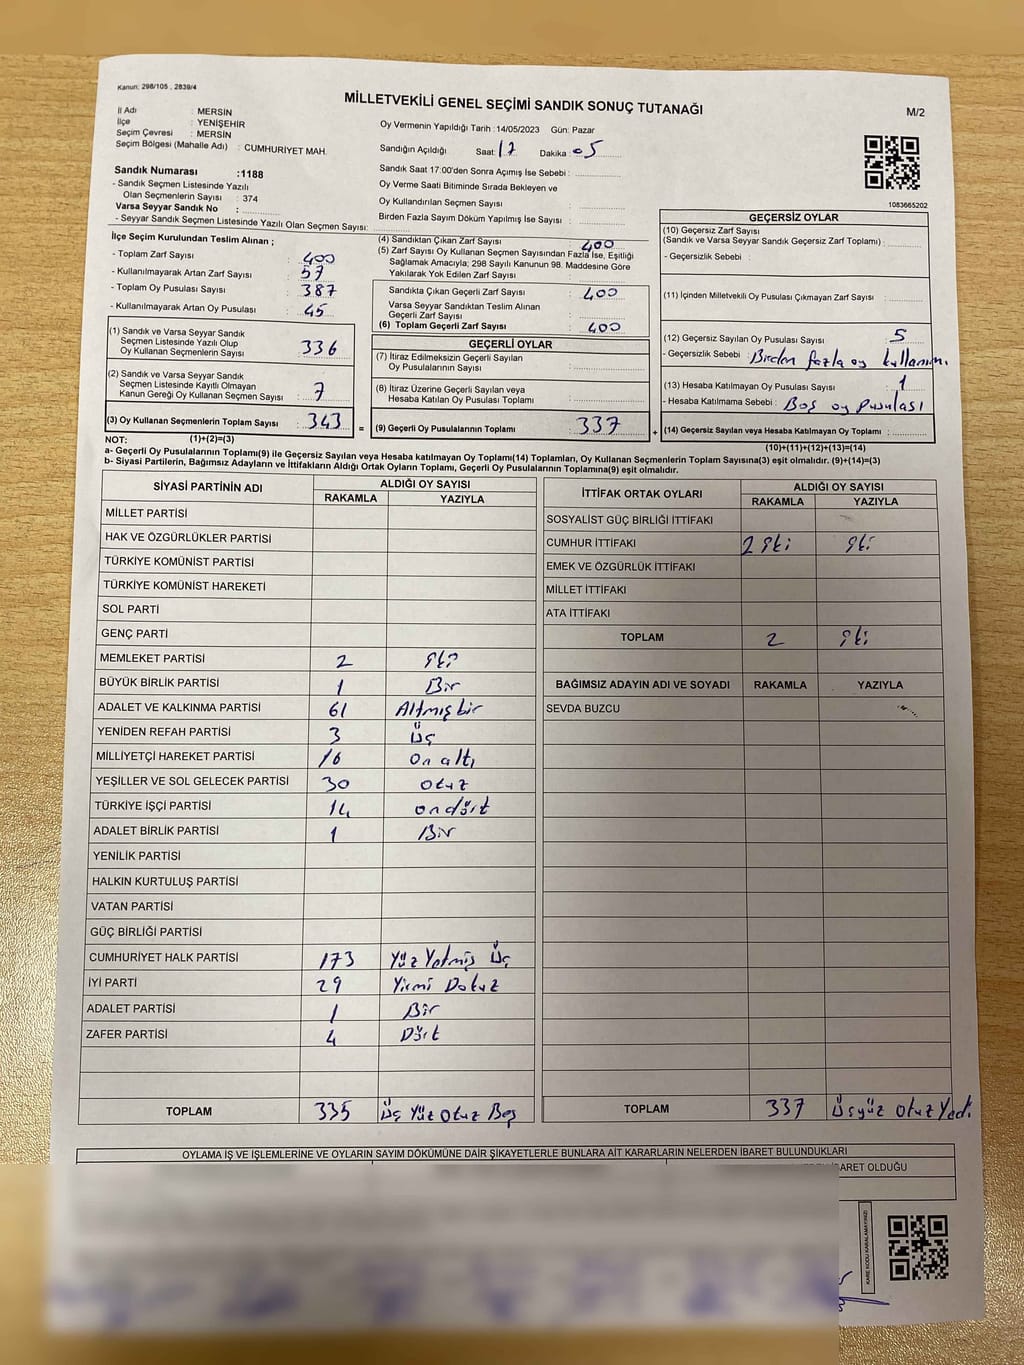 Kanun: 298/105 , 2839/4
MİLLETVEKİLİ GENEL SEÇİMİ SANDIK SONUÇ TUTANAĞI
M/2
İl Adı : MERSİN
İlçe : YENİŞEHİR
Seçim Çevresi : MERSİN
Seçim Bölgesi (Mahalle Adı) : CUMHURİYET MAH.
Sandık Numarası :1188
- Sandık Seçmen Listesinde Yazılı
Olan Seçmenlerin Sayısı : 374
Varsa Seyyar Sandık No :
- Seyyar Sandık Seçmen Listesinde Yazılı Olan Seçmen Sayısı:
Oy Vermenin Yapıldığı Tarih :14/05/2023 Gün: Pazar
Sandığın Açıldığı Saat: 17 Dakika: 05
Sandık Saat 17.00'den Sonra Açımış İse Sebebi :
Oy Verme Saati Bitiminde Sırada Bekleyen ve
Oy Kullandırılan Seçmen Sayısı :
Birden Fazla Sayım Döküm Yapılmış İse Sayısı :
1083665202
İlçe Seçim Kurulundan Teslim Alınan ;
- Toplam Zarf Sayısı : 400
- Kullanılmayarak Artan Zarf Sayısı : 57
- Toplam Oy Pusulası Sayısı : 387
- Kullanılmayarak Artan Oy Pusulası : 45
(1) Sandık ve Varsa Seyyar Sandık
Seçmen Listesinde Yazılı Olup
Oy Kullanan Seçmenlerin Sayısı : 336
(2) Sandık ve Varsa Seyyar Sandık
Seçmen Listesinde Kayıtlı Olmayan
Kanun Gereği Oy Kullanan Seçmen Sayısı : 7
(3) Oy Kullanan Seçmenlerin Toplam Sayısı : 343 =
(4) Sandıktan Çıkan Zarf Sayısı : 400
(5) Zarf Sayısı Oy Kullanan Seçmen Sayısından Fazla İse, Eşitliği
Sağlamak Amacıyla; 298 Sayılı Kanunun 98. Maddesine Göre
Yakılarak Yok Edilen Zarf Sayısı :
Sandıkta Çıkan Geçerli Zarf Sayısı : 400
Varsa Seyyar Sandıktan Teslim Alınan
Geçerli Zarf Sayısı :
(6) Toplam Geçerli Zarf Sayısı : 400
GEÇERLİ OYLAR
(7) İtiraz Edilmeksizin Geçerli Sayılan
Oy Pusulalarının Sayısı :
(8) İtiraz Üzerine Geçerli Sayılan veya
Hesaba Katılan Oy Pusulası Toplamı :
(9) Geçerli Oy Pusulalarının Toplamı : 337 +
GEÇERSİZ OYLAR
(10) Geçersiz Zarf Sayısı
(Sandık ve Varsa Seyyar Sandık Geçersiz Zarf Toplamı) :
- Geçersizlik Sebebi :
(11) İçinden Milletvekili Oy Pusulası Çıkmayan Zarf Sayısı :
(12) Geçersiz Sayılan Oy Pusulası Sayısı : 5
- Geçersizlik Sebebi : Birden fazla oy kullanımı
(13) Hesaba Katılmayan Oy Pusulası Sayısı : 1
- Hesaba Katılmama Sebebi : Boş oy pusulası
(14) Geçersiz Sayılan veya Hesaba Katılmayan Oy Pusulası Toplamı :
NOT: (1)+(2)=(3)
(10)+(11)+(12)+(13)=(14)
a- Geçerli Oy Pusulalarının Toplamı(9) ile Geçersiz Sayılan veya Hesaba katılmayan Oy Pusulası Toplamı(14) Toplamları, Oy Kullanan Seçmenlerin Toplam Sayısına(3) eşit olmalıdır. (9)+(14)=(3)
b- Siyasi Partilerin, Bağımsız Adayların ve İttifakların Aldığı Ortak Oyların Toplamı, Geçerli Oy Pusulalarının Toplamına(9) eşit olmalıdır.
SİYASİ PARTİNİN ADI ALDIĞI OY SAYISI
RAKAMLA YAZIYLA
MİLLET PARTİSİ
HAK VE ÖZGÜRLÜKLER PARTİSİ
TÜRKİYE KOMÜNİST PARTİSİ
TÜRKİYE KOMÜNİST HAREKETİ
SOL PARTİ
GENÇ PARTİ
MEMLEKET PARTİSİ 2 iki
BÜYÜK BİRLİK PARTİSİ 1 Bir
ADALET VE KALKINMA PARTİSİ 61 Altmışbir
YENİDEN REFAH PARTİSİ 3 üç
MİLLİYETÇİ HAREKET PARTİSİ 16 on altı
YEŞİLLER VE SOL GELECEK PARTİSİ 30 otuz
TÜRKİYE İŞÇİ PARTİSİ 14 ondört
ADALET BİRLİK PARTİSİ 1 Bir
YENİLİK PARTİSİ
HALKIN KURTULUŞ PARTİSİ
VATAN PARTİSİ
GÜÇ BİRLİĞİ PARTİSİ
CUMHURİYET HALK PARTİSİ 173 Yüz Yetmiş üç
İYİ PARTİ 29 Yirmi Dokuz
ADALET PARTİSİ 1 Bir
ZAFER PARTİSİ 4 Dört
TOPLAM 335 üç Yüz Otuz Beş
İTTİFAK ORTAK OYLARI ALDIĞI OY SAYISI
RAKAMLA YAZIYLA
SOSYALİST GÜÇ BİRLİĞİ İTTİFAKI
CUMHUR İTTİFAKI 2 iki iki
EMEK VE ÖZGÜRLÜK İTTİFAKI
MİLLET İTTİFAKI
ATA İTTİFAKI
TOPLAM 2 iki
BAĞIMSIZ ADAYIN ADI VE SOYADI RAKAMLA YAZIYLA
SEVDA BUZCU
TOPLAM 337 üçyüz otuz Yedi
OYLAMA İŞ VE İŞLEMLERİNE VE OYLARIN SAYIM DÖKÜMÜNE DAİR ŞİKAYETLERLE BUNLARA AİT KARARLARIN NELERDEN İBARET BULUNDUKLARI
İBARET OLDUĞU
KARE KODU KARALAMAYINIZ!